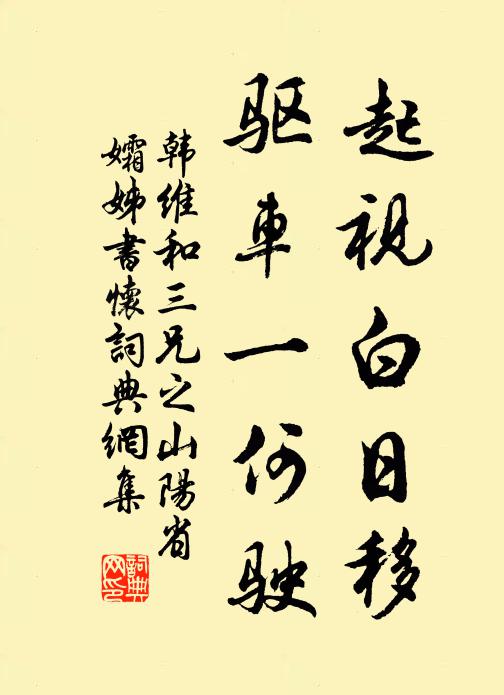 起視白日移
驱車一何駛
韩維和三兄之山陽省
孀姊書懷詞典網集
詞典网印